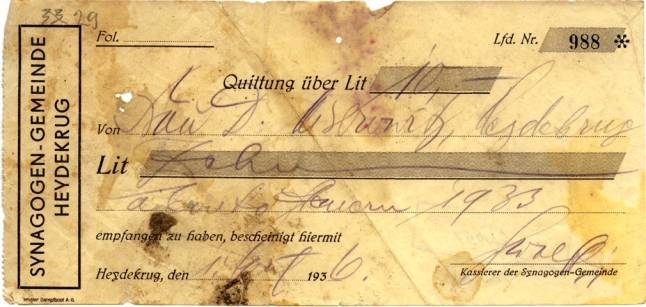 33 29
SYNAGOGEN-GEMEINDE
HEYDEKRUG
Fol.
Lfd. Nr. 988 *
Quittung über Lit 10.–
Von Frau D. Heydekrug
Lit Zehn
à Conto Steuern 1933
empfangen zu haben, bescheinigt hiermit
Heydekrug, den 1936.
Kassierer der Synagogen-Gemeinde
Memeler Dampfboot A. G.